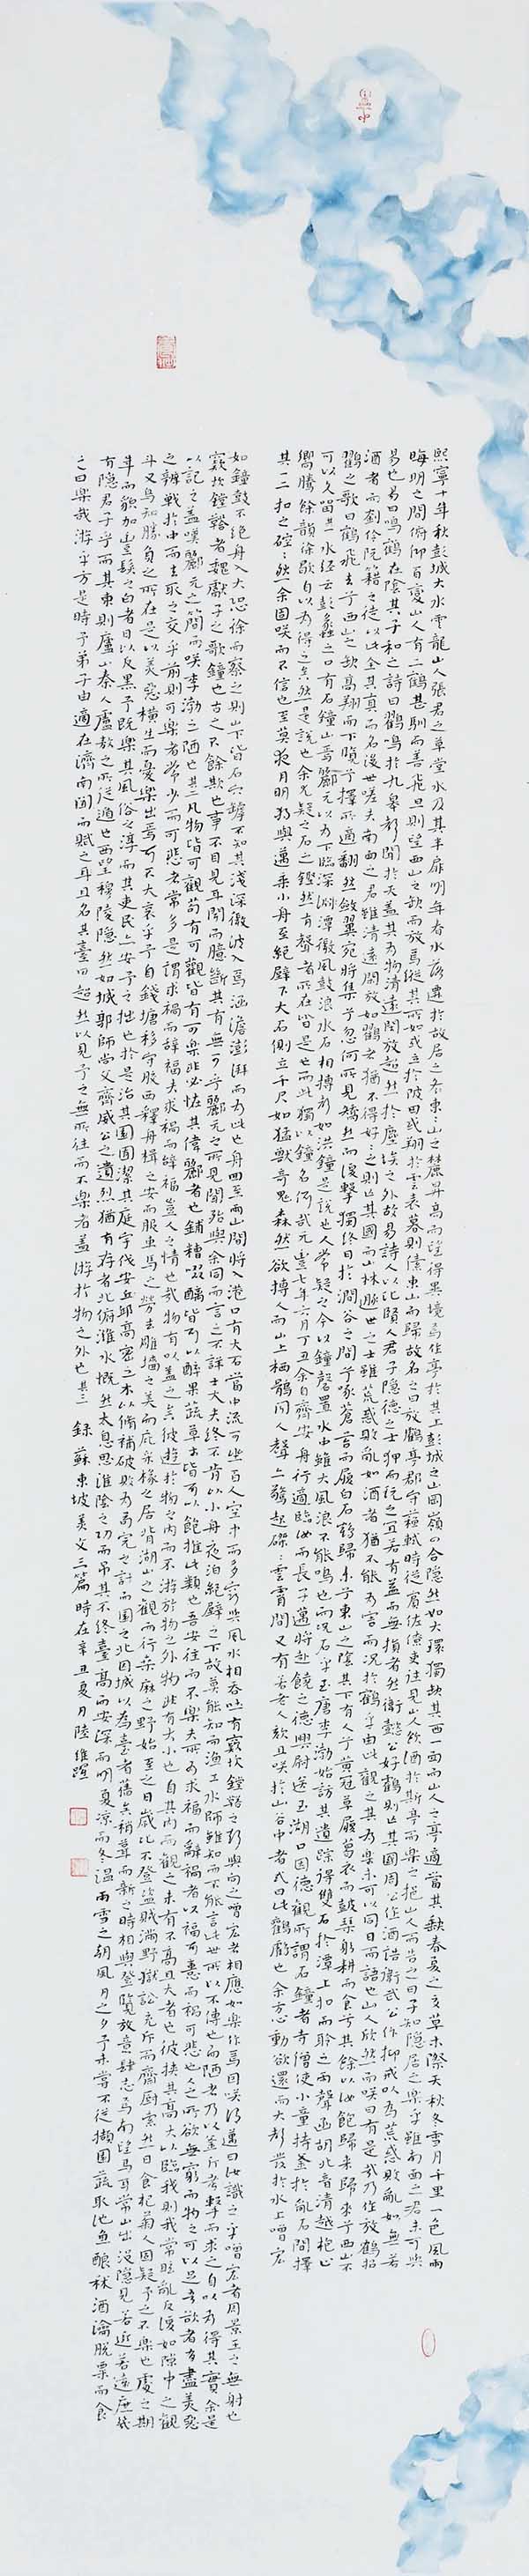 熙寧十年秋彭城大水雲龍山人張君之草堂水及其半扉明年春水落遷於故居之東東山之麓昇高而望得異境焉作亭於其上彭城之山岡嶺四合隱然如大環獨缺其西一面而山人之亭適當其缺春夏之交草木際天秋冬雪月千里一色風雨
晦明之間俯仰百變山人有二鶴甚馴而善飛旦則望西山之缺而放焉縱其所如或立於陂田或翔於雲表暮則傃東山而歸故名之曰放鶴亭郡守蘇軾時從賓佐僚吏往見山人飲酒於斯亭而樂之挹山人而告之曰子知隱居之樂乎雖南面之君未可與
易也易曰鳴鶴在陰其子和之詩曰鶴鳴於九皋聲聞於天蓋其為物清遠閑放超然於塵埃之外故易詩人以比賢人君子隱德之士狎而玩之宜若有益而無損者然衛懿公好鶴則亡其國周公作酒誥衛武公作抑戒以為荒惑敗亂如無若
酒者而劉伶阮籍之徒以此全其真而名後世嗟夫南面之君雖清遠閑放如鶴者猶不得好之則亡其國而山林遯世之士雖荒惑敗亂如酒者猶不能為害而況於鶴乎由此觀之其為樂未可以同日而語也山人欣然而咲曰有是哉乃作放鶴招
鶴之歌曰鶴飛去兮西山之缺高翔而下覽兮擇所適翻然斂翼宛將集兮忽何所見矯然而復擊獨終日於澗谷之間兮啄蒼苔而履白石鶴歸來兮東山之陰其下有人兮黃冠草屨葛衣而鼓琴躬耕而食兮其餘以汝飽歸來歸來兮西山不
可以久留其一水經云彭蠡之口有石鐘山焉酈元以為下臨深淵潭微風鼓浪水石相搏聲如洪鐘是說也人常疑之今以鐘磬置水中雖大風浪不能鳴也而況石乎至唐李渤始訪其遺踪得雙石於潭上扣而聆之南聲函胡北音清越枹止
響騰餘韻徐歇自以為得之矣然是說也余尤疑之石之鏗然有聲者所在皆是也而此獨以鐘名何哉元豐七年六月丁丑余自齊安舟行適臨汝而長子邁將赴饒之德興尉送至湖口因得觀所謂石鐘者寺僧使小童持斧於亂石間擇
其一二扣之硿硿然余固咲而不信也至莫夜月明獨與邁乘小舟至絕壁下大石側立千尺如猛獸奇鬼森然欲搏人而山上栖鶻聞人聲亦驚起磔磔雲霄間又有若老人欬且咲於山谷中者或曰此鸛鶴也余方心動欲還而大聲發於水上噌吰
如鐘鼓不絕舟人大恐徐而察之則山下皆石穴罅不知其淺深微波入焉涵澹彭湃而為此也舟回至兩山間將入港口有大石當中流可坐百人空中而多竅與風水相吞吐有窾坎鏜鞳之聲與向之噌吰者相應如樂作焉因咲謂邁曰汝識之乎噌吰者周景王之無射也
窾坎鏜鞳者魏獻子之歌鐘也古之人不余欺也事不目見耳聞而臆斷其有無可乎酈元之所見聞殆與余同而言之不詳士大夫終不肯以小舟夜泊絕壁之下故莫能知而漁工水師雖知而不能言此世所以不傳也而陋者乃以斧斤考擊而求之自以為得其實余是
以記之蓋嘆酈元之簡而咲李渤之陋也其二凡物皆可觀苟有可觀皆有可樂非必怪奇偉麗者也餔糟啜醨皆可以醉果蔬草木皆可以飽推此類也吾安往而不樂夫所為求福而辭禍者以福可喜而禍可悲也人之所欲無窮而物之可以足吾欲者有盡美惡
之辨戰於中而去取之擇交乎前則可樂者常少而可悲者常多是謂求禍而辭福夫求禍而辭福豈人之情也哉物有以蓋之矣彼遊於物之內而不游於物之外物非有大小也自其內而觀之未有不高且大者也彼挾其高大以臨我則我常眩亂反復如隙中之觀
斗又烏知勝負之所在是以美惡橫生而憂樂出焉可不大哀乎予自錢塘移守膠西釋舟楫之安而服車馬之勞去雕墻之美而庇采椽之居背湖山之觀而行桑麻之野始至之日歲比不登盜賊滿野獄訟充斥而齋廚索然日食杞菊人固疑予之不樂也處之期
年而貌加丰髮之白者日以反黑予既樂其風俗之淳而其吏民亦安予之拙也於是治其園圃潔其庭宇伐安丘高密之木以修補破敗為苟完之計而園之北因城以為臺者舊矣稍葺而新之時相與登覽放意肆志焉南望馬耳常山出沒隱見若近若遠庶幾
有隱君子乎而其東則廬山秦人盧敖之所從遁也西望穆陵隱然如城郭師尚父齊威公之遺烈猶有存者北俯濰水慨然太息思淮陰之功而弔其不終臺高而安深而明夏涼而冬溫雨雪之朝風月之夕予未嘗不從擷園蔬取池魚釀秫酒瀹脫粟而食
之曰樂哉游乎方是時予弟子由適在濟南聞而賦之且名其臺曰超然以見予之無所往而不樂者蓋游於物之外也其三　錄蘇東坡美文三篇時在辛丑夏月陸維躍